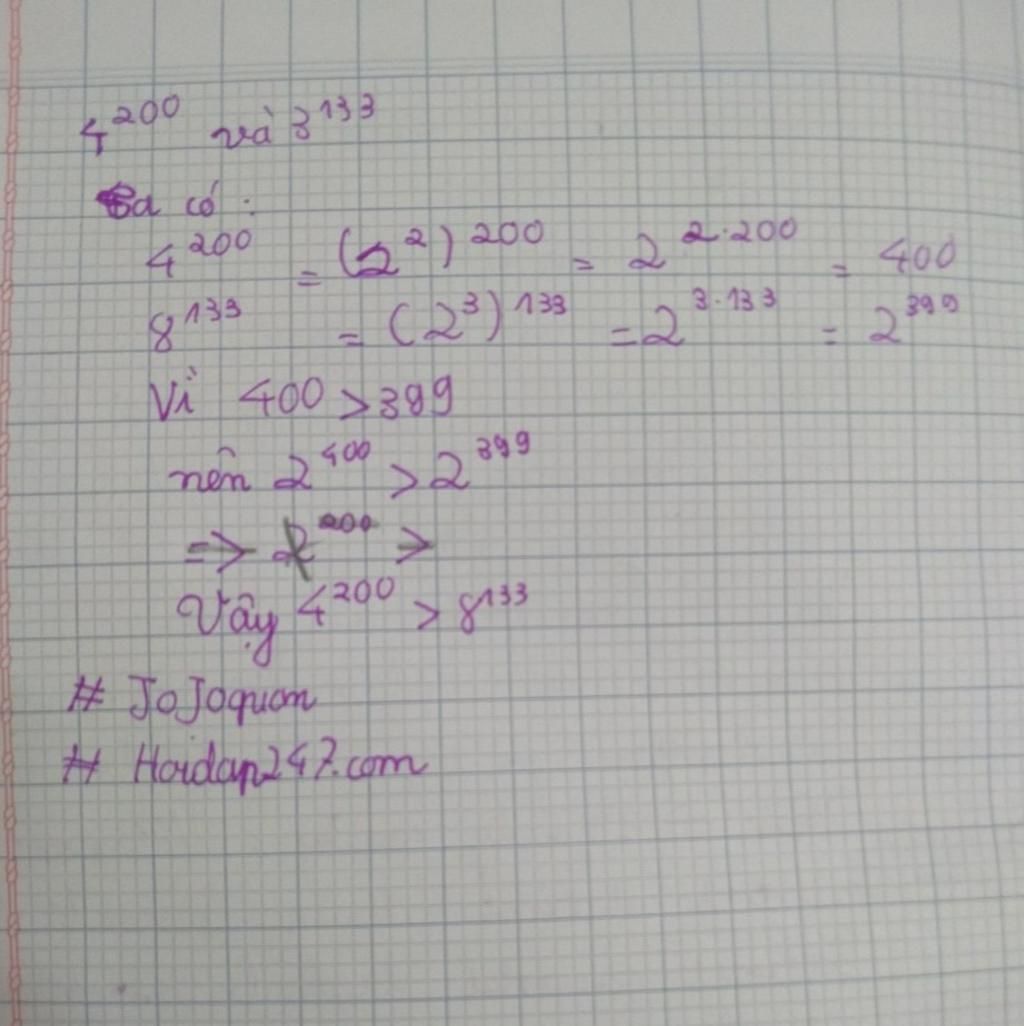 4^200 và 3^133
Ta có :
4^200 = (2^2)^200 = 2^2.200 = 400
8^133 = (2^3)^133 = 2^3.133 = 2^399
Vì 400 > 399
nên 2^400 > 2^399
=> 2^200 >
Vậy 4^200 > 8^133
# JoJoquon
# Hoidap247.com